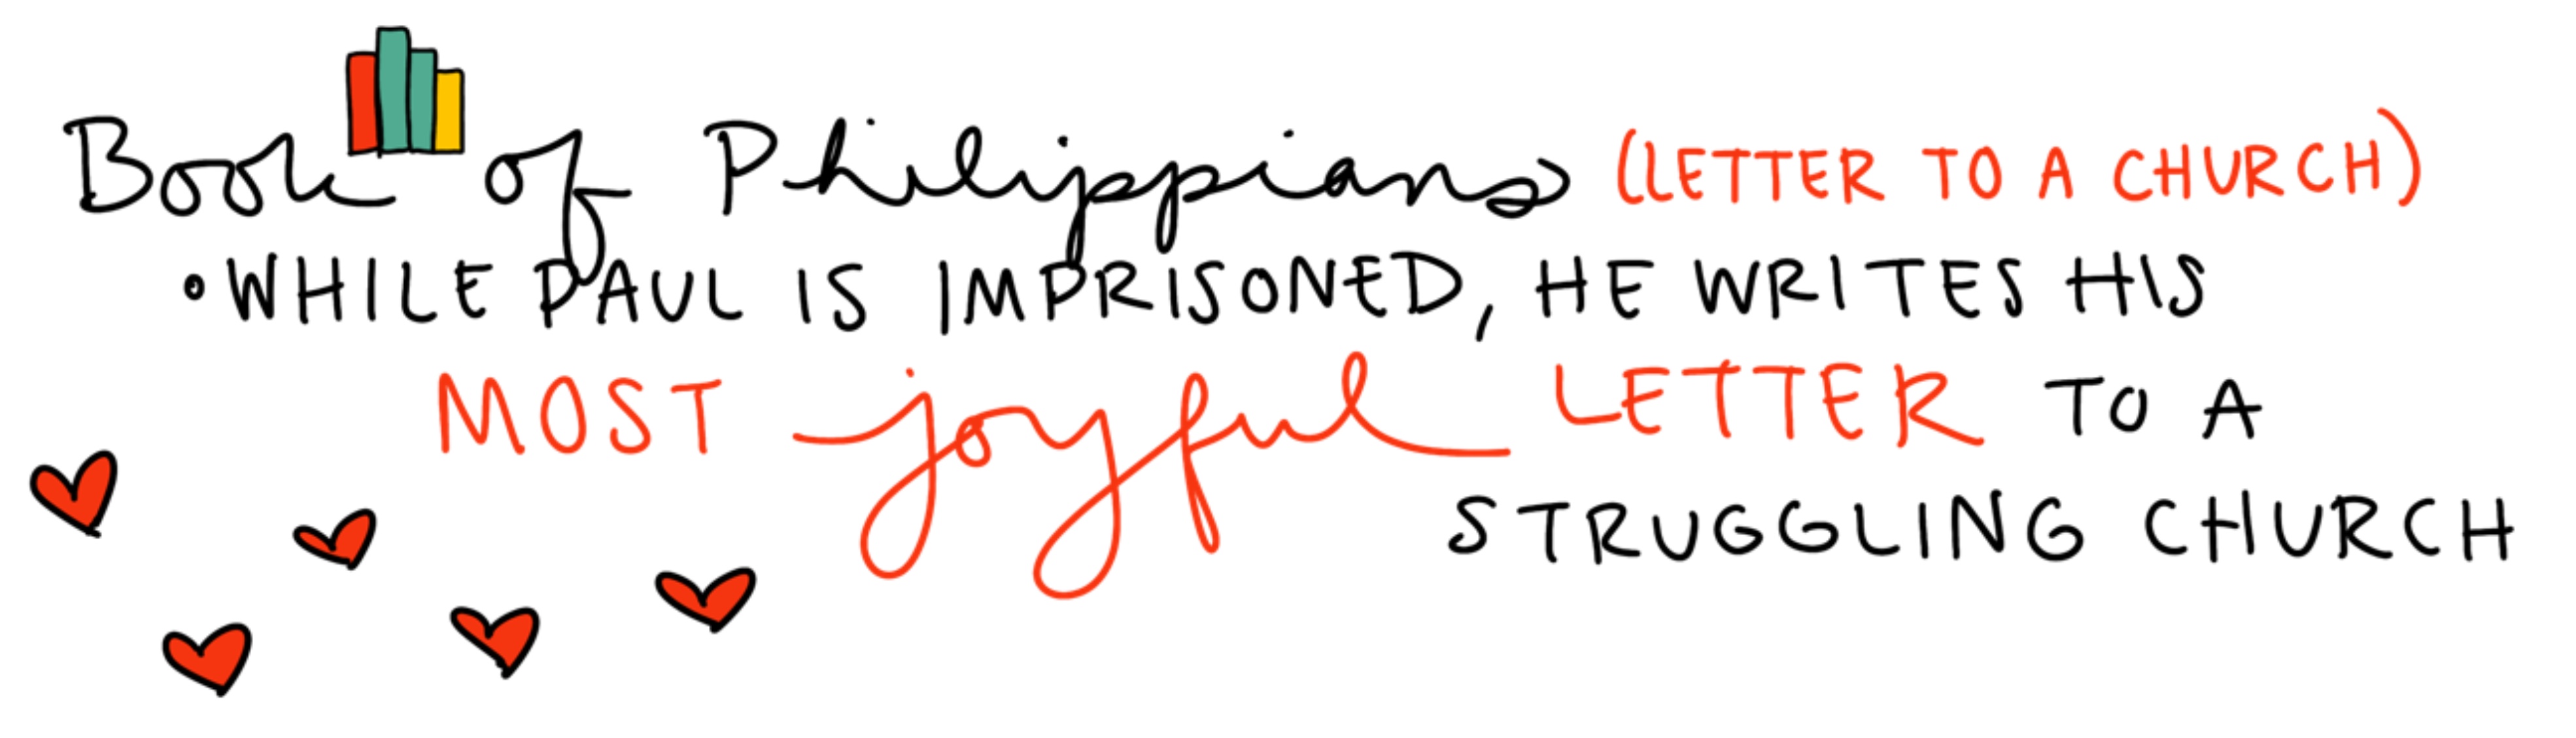 Book of Philippians (LETTER TO A CHURCH)
• WHILE PAUL IS IMPRISONED, HE WRITES HIS
MOST joyful LETTER TO A
STRUGGLING CHURCH